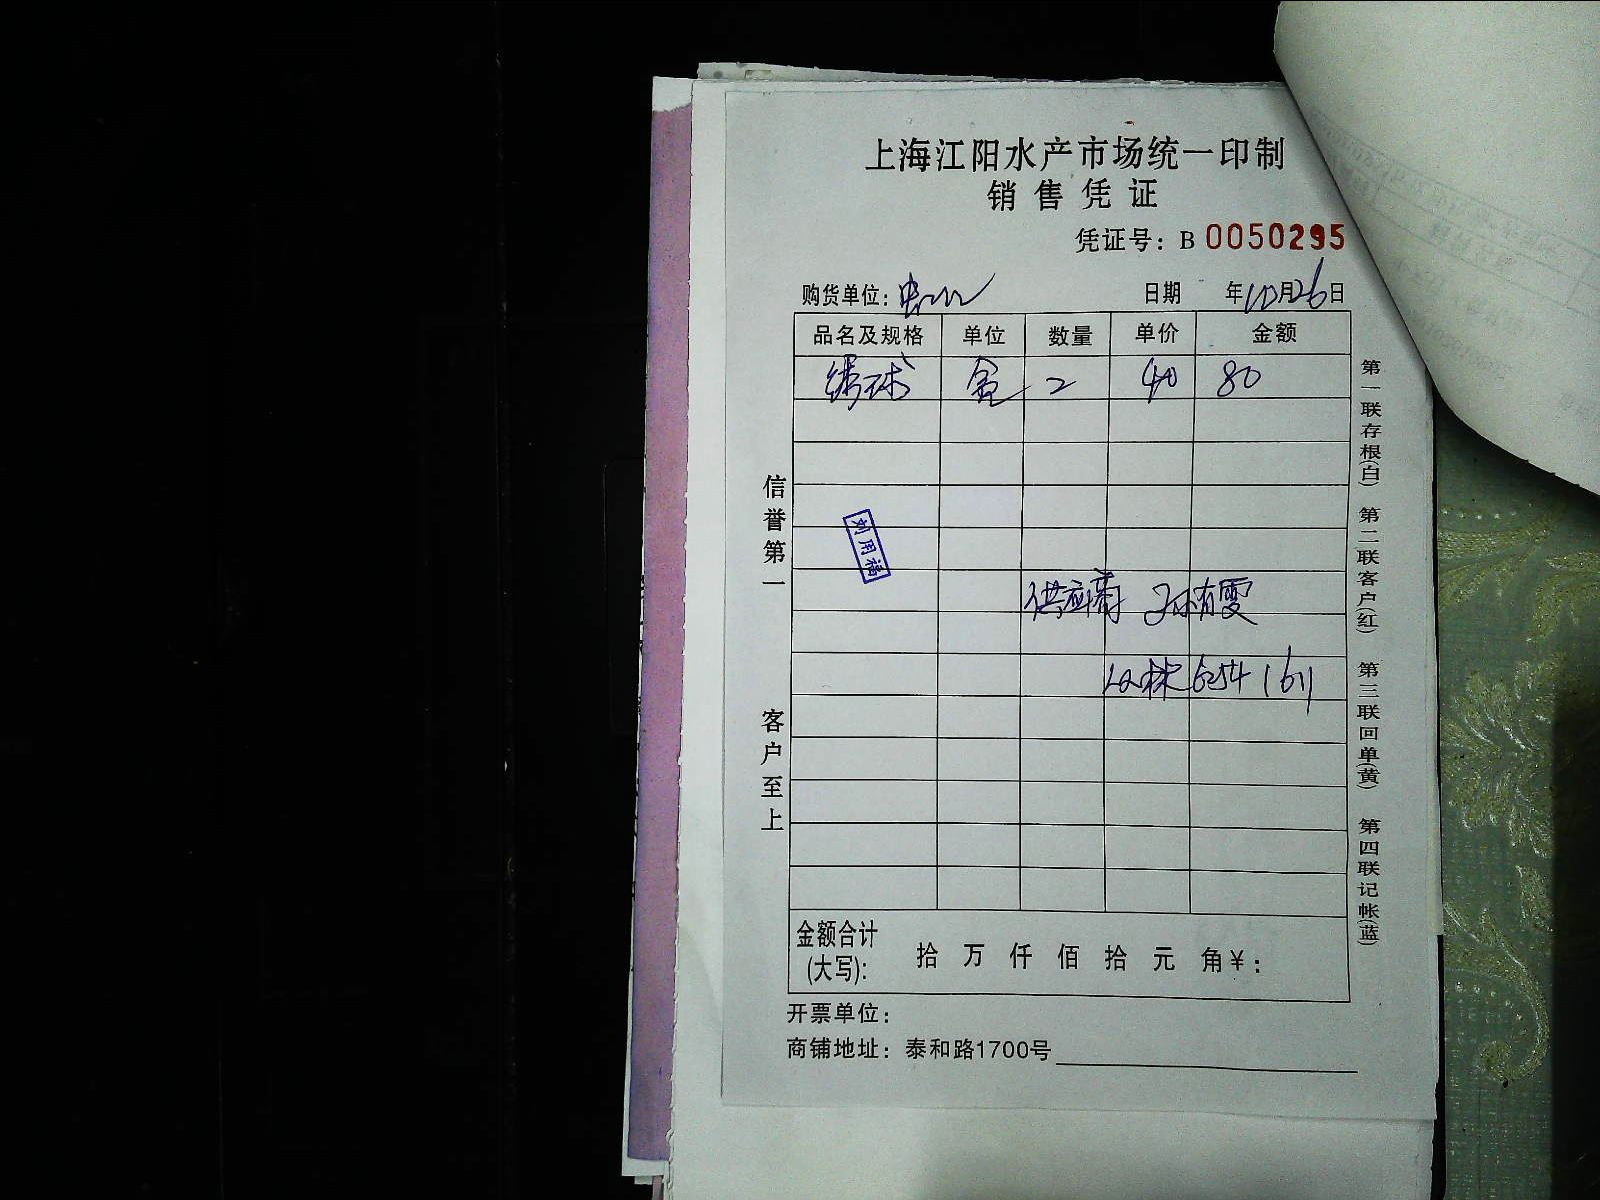 上海江阳水产市场统一印制
销售凭证
凭证号：B 0050295
购货单位： 日期 年10月26日
品名及规格 单位 数量 单价 金额
绣球 盒 2 40 80
刘用福
供应商 孙有雯
62541611
金额合计(大写)： 拾 万 仟 佰 拾 元 角 ¥：
开票单位：
商铺地址：泰和路1700号
信誉第一
客户至上
第一联存根(白) 第二联客户(红) 第三联回单(黄) 第四联记帐(蓝)